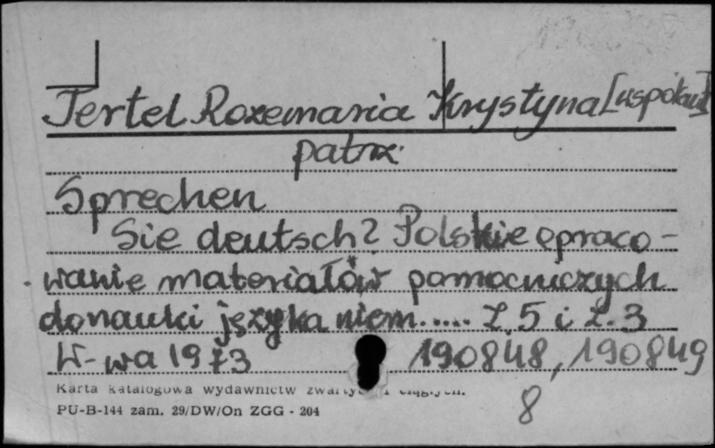 Tertel Rozemaria Krystyna [uspółaut]
patrz:
Sprechen
Sie deutsch? Polskie opraco-
wanie materiałów pomocniczych
do nauki języka niem..... Z. 5 i Z. 3
W-wa 1973 190848, 190849
Karta katalogowa wydawnictw zwartych i ciągłych.
PU-B-144 zam. 29/DW/On ZGG - 204
8